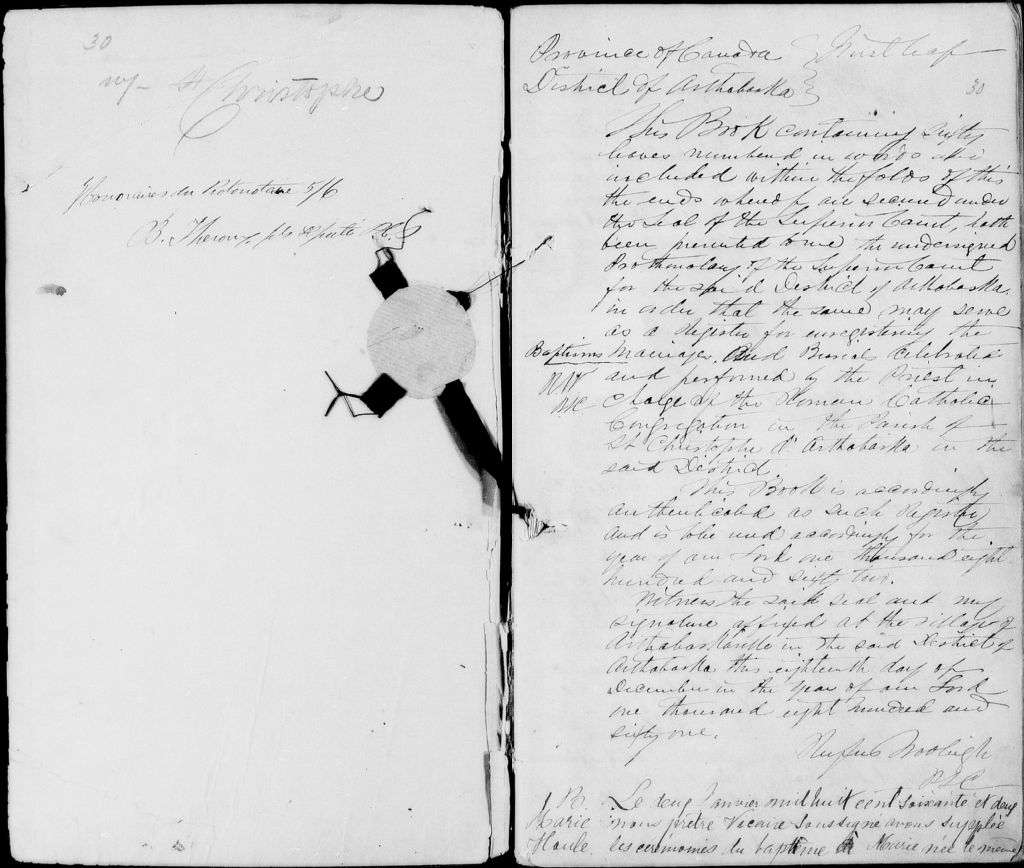 30
St Christophe
Honoraires du Protonotaire 5/6
B. Theroux, député P.C.S
Province of Canada } First leaf
District of Arthabaska } 30
This Book containing sixty
leaves numbered in words and
included within the folds of this
the ends whereof are secured under
the Seal of the Superior Court, hath
been presented to me the undersigned
Prothonotary of the Superior Court
for the said District of Arthabaska,
in order that the same may serve
as a Register for enregistering the
Baptisms Marriages, and Burials celebrated
and performed by the Priest in
charge of the Roman Catholic
Congregation in the Parish of
St Christophe d'Arthabaska in the
said District
This Book is accordingly
authenticated as such Register
and is to be used accordingly for the
year of our Lord one thousand eight
hundred and sixty two.
Witness the said seal and my
signature affixed at the village of
Arthabaskaville in the said District of
Arthabaska this eighteenth day of
December in the year of our Lord
one thousand eight hundred and
sixty one.
Rufus
P.S.C
B. Le deux Janvier mil huit cent soixante et deux
Marie nous prêtre Vicaire soussigné avons supplée
Houle les ceremonies du baptême à Marie née le même